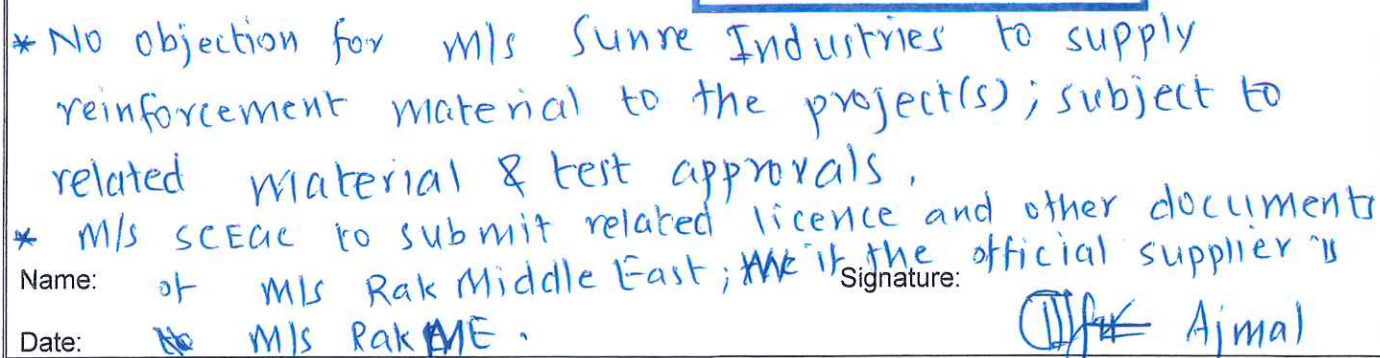 * No objection for M/s Sunre Industries to supply
reinforcement material to the project(s); subject to
related material & test approvals.
* M/s SCEGC to submit related licence and other documents
Name: of M/s Rak Middle East; if the official supplier is Signature:
Date: M/s Rak ME. Ajmal